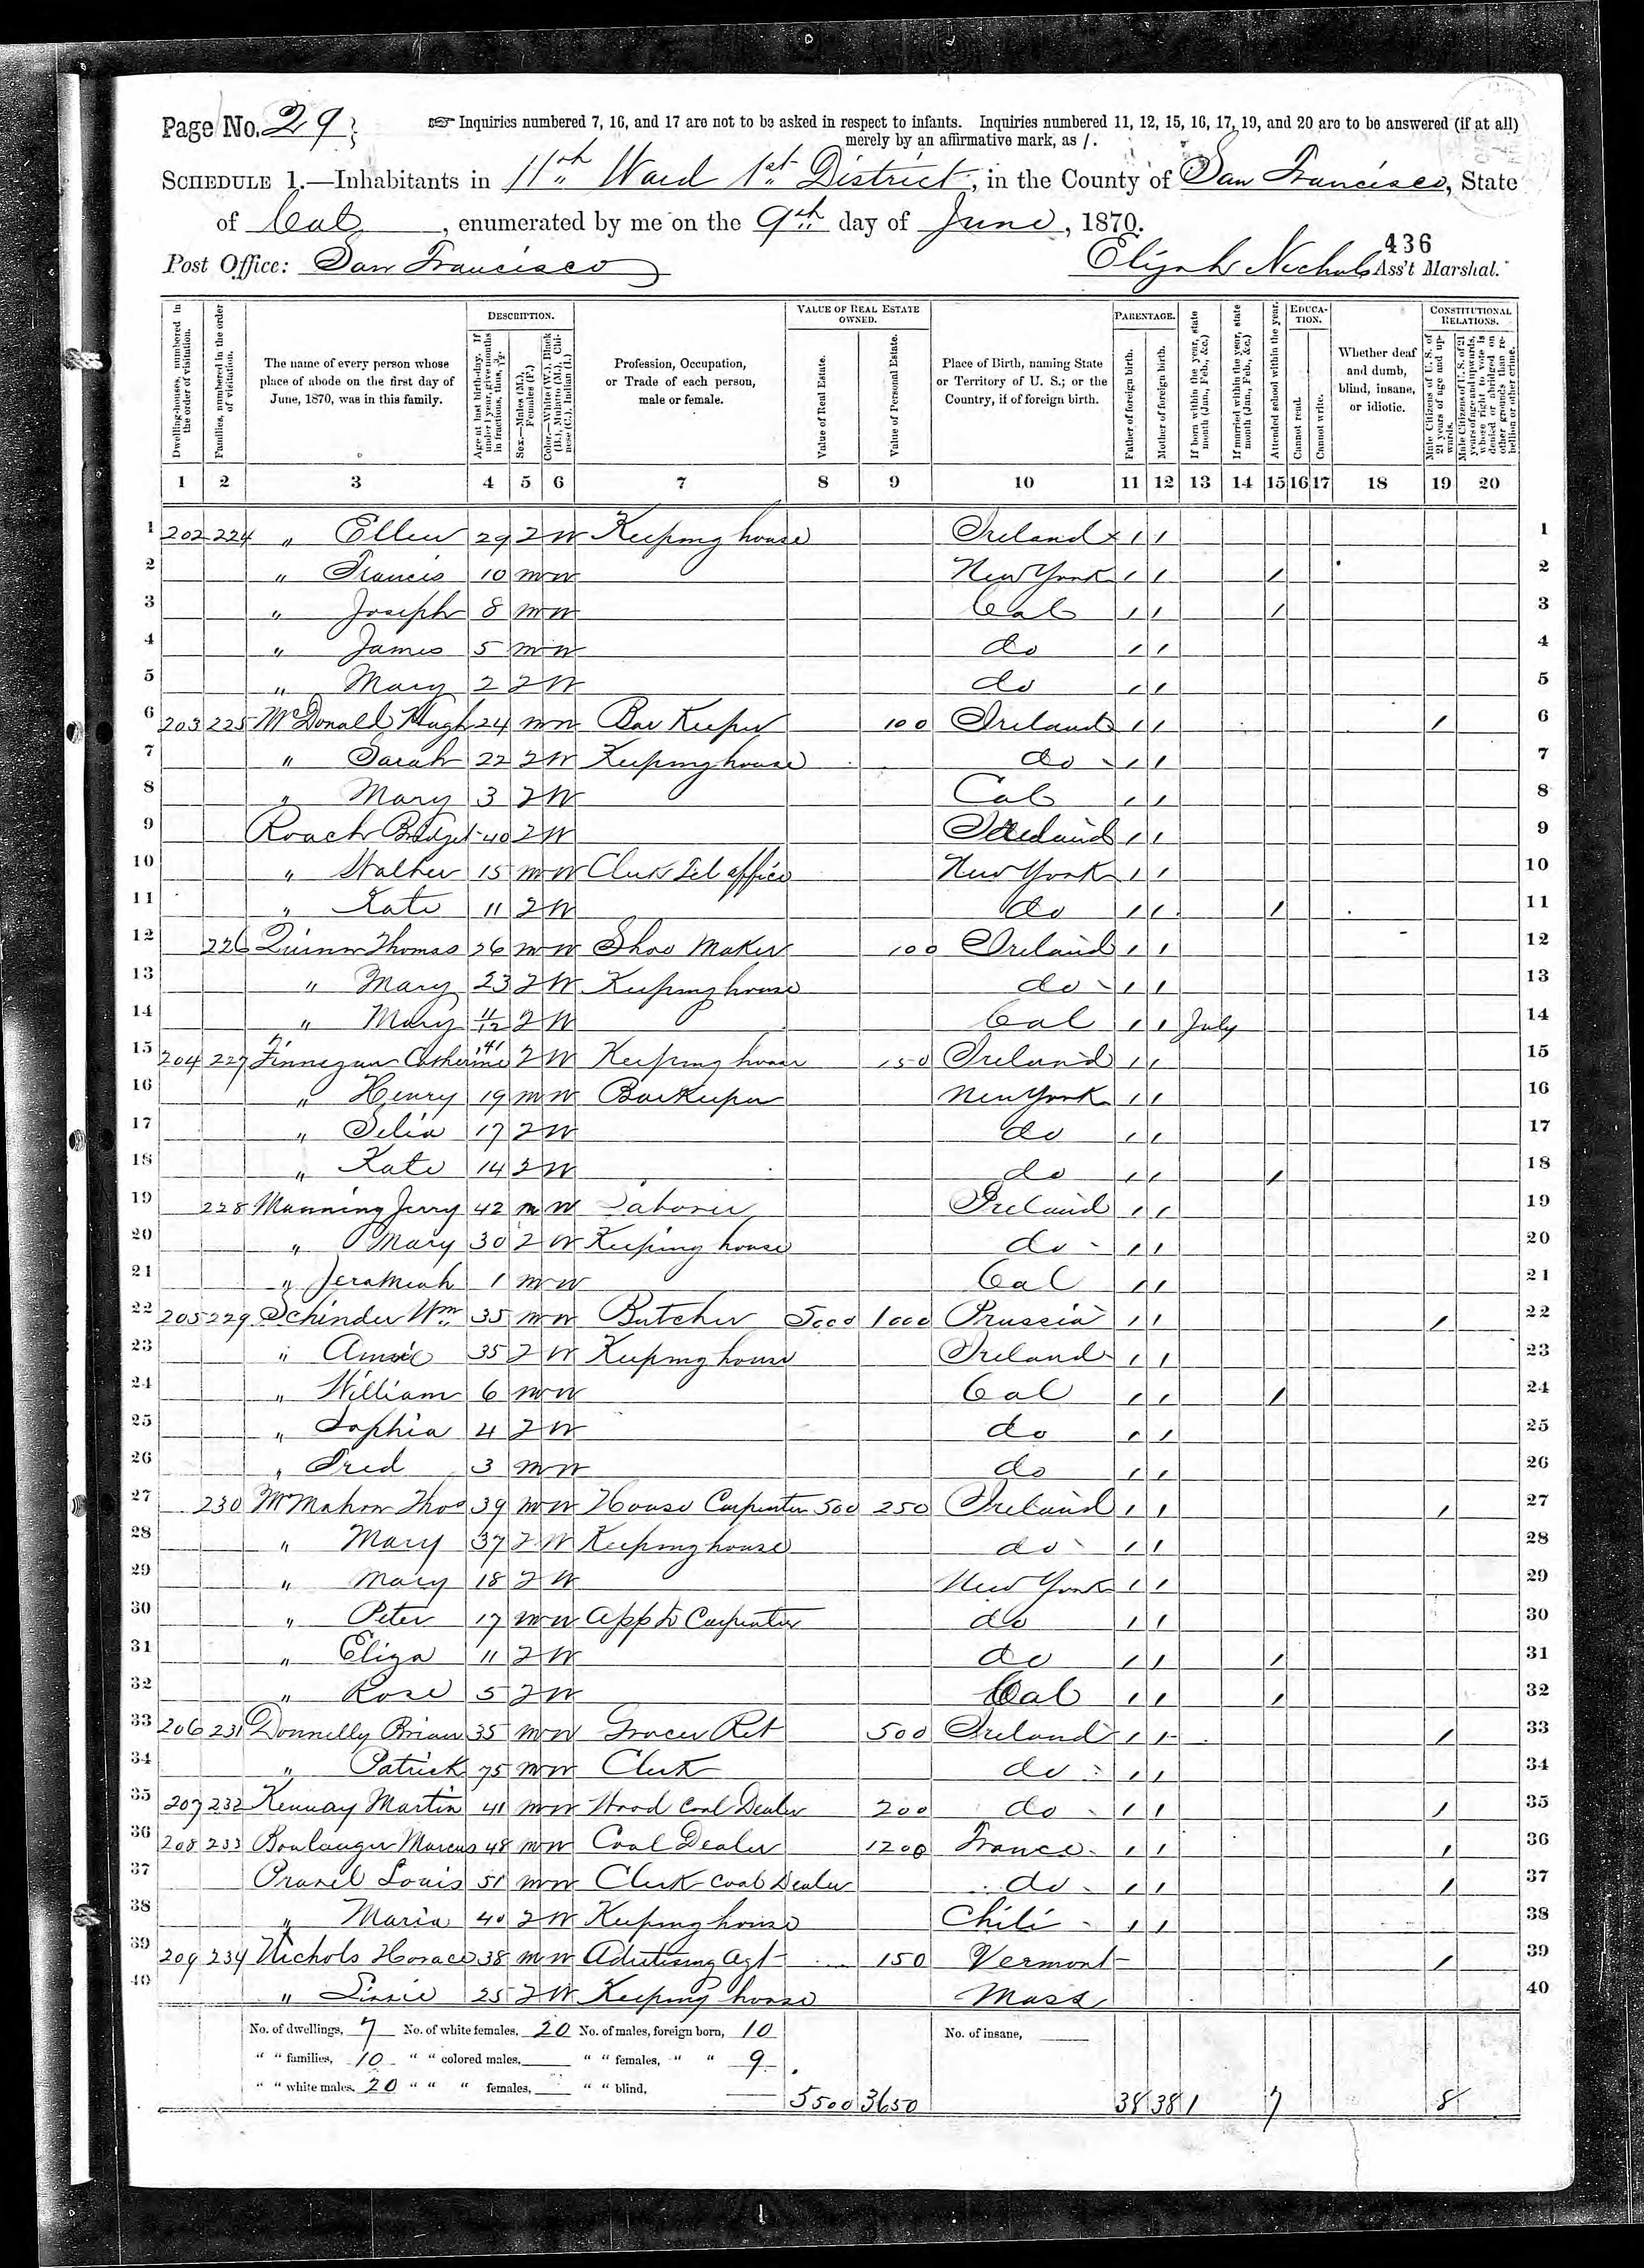 Page No. 29
☞ Inquiries numbered 7, 16, and 17 are not to be asked in respect to infants. Inquiries numbered 11, 12, 15, 16, 17, 19, and 20 are to be answered (if at all)
merely by an affirmative mark, as /.
SCHEDULE 1.—Inhabitants in 11th Ward 1st District, in the County of San Francisco, State
of Cal, enumerated by me on the 9th day of June, 1870.
436
Post Office: San Francisco Elijah Nichols Ass't Marshal.
DESCRIPTION. VALUE OF REAL ESTATE OWNED. PARENTAGE. EDUCATION. CONSTITUTIONAL RELATIONS.
Dwelling-houses, numbered in the order of visitation.
Families, numbered in the order of visitation.
The name of every person whose place of abode on the first day of June, 1870, was in this family.
Age at last birth-day. If under 1 year, give months in fractions, thus, 3/12
Sex.—Males (M.), Females (F.)
Color.—White (W.), Black (B.), Mulatto (M.), Chinese (C.), Indian (I.)
Profession, Occupation, or Trade of each person, male or female.
Value of Real Estate.
Value of Personal Estate.
Place of Birth, naming State or Territory of U. S.; or the Country, if of foreign birth.
Father of foreign birth.
Mother of foreign birth.
If born within the year, state month (Jan., Feb., &c.)
If married within the year, state month (Jan., Feb., &c.)
Attended school within the year.
Cannot read.
Cannot write.
Whether deaf and dumb, blind, insane, or idiotic.
Male Citizens of U. S. of 21 years of age and upwards.
Male Citizens of U. S. of 21 years of age and upwards, whose right to vote is denied or abridged on other grounds than rebellion or other crime.
1 2 3 4 5 6 7 8 9 10 11 12 13 14 15 16 17 18 19 20
1 202 224 " Ellen 29 F W Keeping house Ireland x / / 1
2 " Francis 10 M W New York / / / 2
3 " Joseph 8 M W Cal / / / 3
4 " James 5 M W do / / 4
5 " Mary 2 F W do / / 5
6 203 225 McDonall Hugh 24 M W Bar Keeper 100 Ireland / / / 6
7 " Sarah 22 F W Keeping house do / / 7
8 " Mary 3 F W Cal / / 8
9 Roach Bridget 40 F W Ireland / / 9
10 " Walter 15 M W Clerk Tel office New York / / 10
11 " Kate 11 F W do / / / 11
12 226 Quinn Thomas 26 M W Shoe Maker 100 Ireland / / 12
13 " Mary 23 F W Keeping house do / / 13
14 " Mary 11/12 F W Cal / / July 14
15 204 227 Finnegan Catherine 41 F W Keeping house 150 Ireland / / 15
16 " Henry 19 M W Bar Keeper New York / / 16
17 " Selia 17 F W do / / 17
18 " Kate 14 F W do / / / 18
19 228 Manning Jerry 42 M W Laborer Ireland / / 19
20 " Mary 30 F W Keeping house do / / 20
21 " Jeramiah 1 M W Cal / / 21
22 205 229 Schinder Wm 35 M W Butcher 5000 1000 Prussia / / / 22
23 " 35 F W Keeping house Ireland / / 23
24 " William 6 M W Cal / / / 24
25 " Sophia 4 F W do / / 25
26 " Fred 3 M W do / / 26
27 230 McMahon Thos 39 M W House Carpenter 500 250 Ireland / / / 27
28 " Mary 37 F W Keeping house do / / 28
29 " Mary 18 F W New York / / 29
30 " Peter 17 M W App to Carpenter do / / 30
31 " Eliza 11 F W do / / / 31
32 " Rose 5 F W Cal / / / 32
33 206 231 Donnelly Brian 35 M W Grocer Ret 500 Ireland / / / 33
34 " Patrick 75 M W Clerk do / / 34
35 207 232 Kenway Martin 41 M W Wood Coal Dealer 200 do / / / 35
36 208 233 Boulanger Marcus 48 M W Coal Dealer 1200 France / / / 36
37 Louis 51 M W Clerk Coal Dealer do / / / 37
38 " Maria 40 F W Keeping house Chili / / 38
39 209 234 Nichols Horace 38 M W Advertising Agt 150 Vermont / 39
40 " Lizzie 25 F W Keeping house Mass 40
No. of dwellings, 7 No. of white females, 20 No. of males, foreign born, 10 No. of insane,
" " families, 10 " " colored males, " " females, " " 9
" " white males, 20 " " " females, " " blind,
5500 3650 38 38 1 7 8